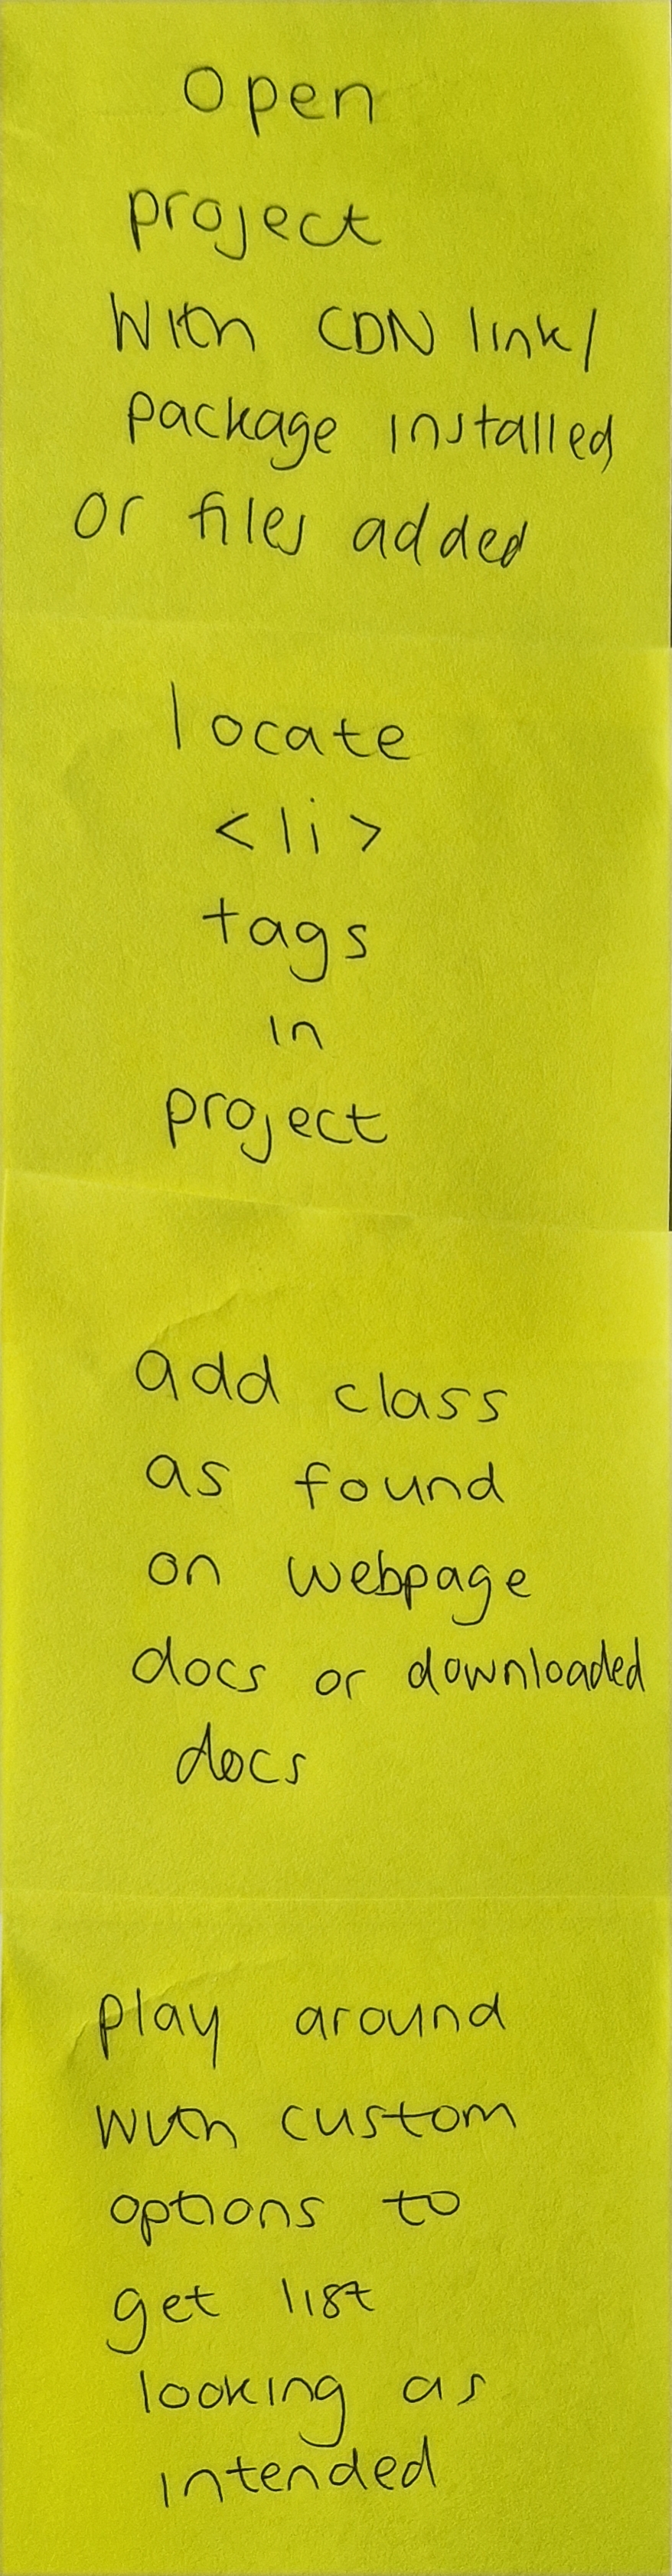 Open
project
With CDN link/
package installed
or files added
locate
<li>
tags
in
project
add class
as found
on webpage
docs or downloaded
docs
play around
with custom
options to
get list
looking as
intended